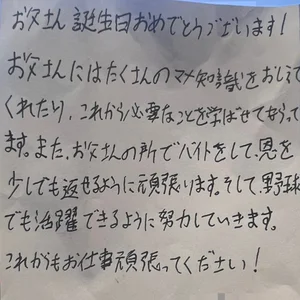 お父さん誕生日おめでとうございます!
お父さんにはたくさんのマメ知識をおしえて
くれたり、これから必要なことを学ばせてもらって
ます。また、お父さんの所でバイトをして、恩を
少しでも返せるように頑張ります。そして、野球
でも活躍できるように努力していきます。
これからもお仕事頑張ってください!